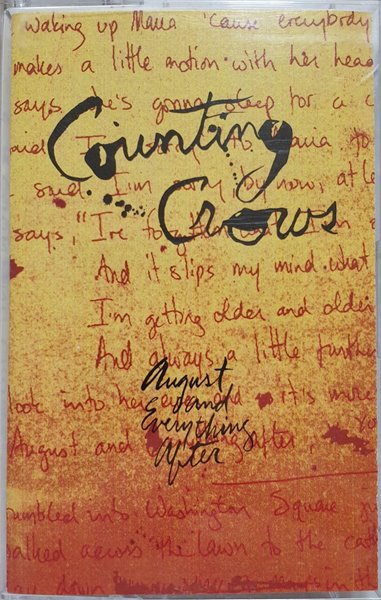 waking up Maria 'cause everybody
makes a little motion with her head
says, he's gonna sleep for a c
said I'm sorry to Maria
Counting
said I'm sorry by now, at le
Crows
says, "I've
And it slips my mind what
I'm getting older and older
And always a little further
August
and
Everything
After
look into her it's more
August and everything after,
stumbled into Washington Square
walked across the lawn to the cath
down in the